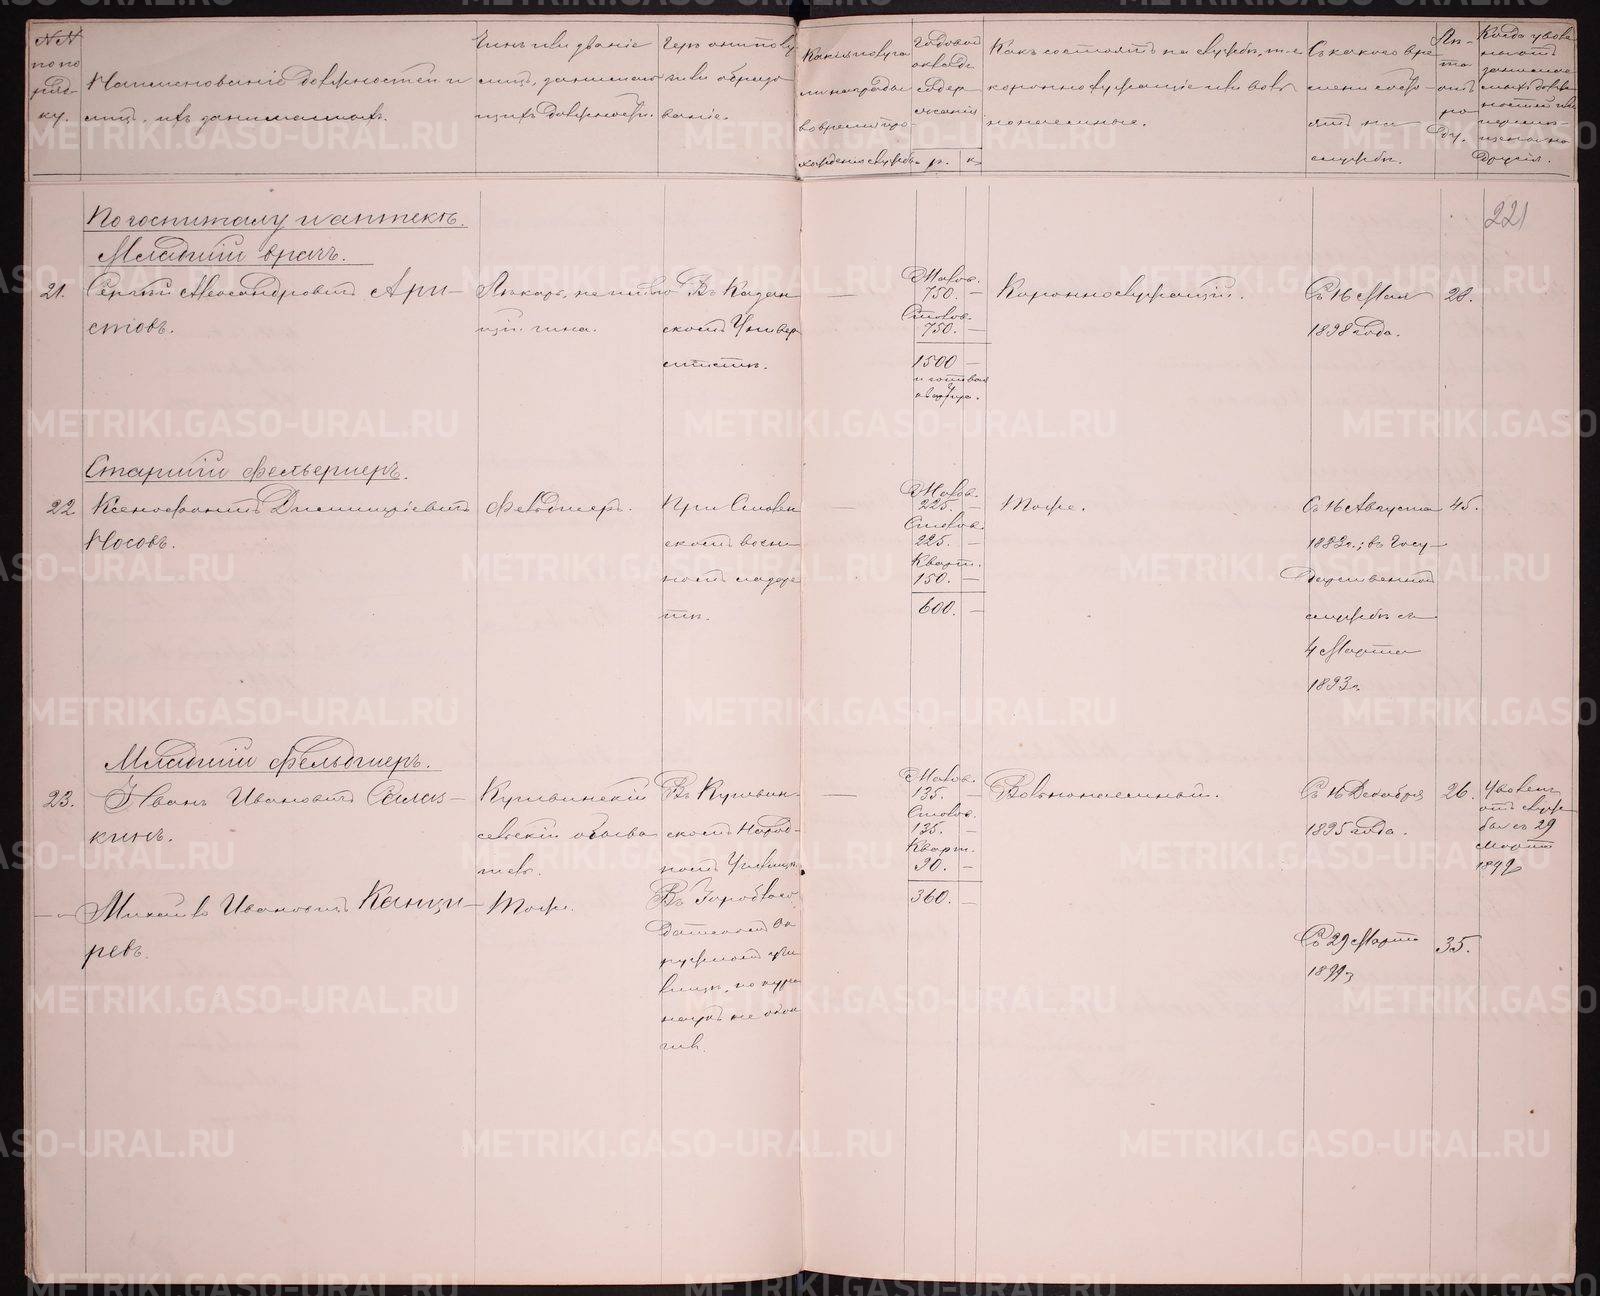 NN
по по
ряд-
ку.
Наименованiе должностей и
лицъ, ихъ занимающихъ.
Чинъ или званiе
лицъ, занимаю-
щихъ должности.
Гдѣ они полу-
чили образо-
ванiе.
Какiя получа-
ли награды
во время про-
хожденiя службы
Годовой
окладъ
содер-
жанiя
р. к.
Какъ состоятъ на службѣ, т. е.
короннослужащiе или воль-
нонаемные.
Съ какого вре-
мени состо-
ятъ на
службѣ.
Лѣ-
та
отъ
ро-
ду.
Когда уволе-
ны отъ
занимае-
мыхъ долж-
ностей или
перемѣ-
щены на
другiя.
221
По госпиталю и аптекѣ.
Младшiй врачъ.
21.
Сергѣй Александровичъ Ари-
стовъ.
Лѣкарь, не имѣю-
щiй чина.
Въ Казан-
скомъ Универ-
ситетѣ.
—
Жалов.
750. —
Столов.
750. —
1500 —
и готовая
квартира.
Короннослужащiй.
Съ 16 Мая
1898 года.
28.
Старшiй фельдшеръ.
22
Ксенофонтъ Дмитрiевичъ
Носовъ.
Фельдшеръ.
При
скомъ воен-
номъ лазаре-
тѣ.
—
Жалов.
225. —
Столов.
225. —
Кварт.
150. —
600. —
Тоже.
Съ 16 Августа
1883 г.; въ Госу-
дарственной
службѣ съ
4 Марта
1893 г.
45.
Младшiй фельдшеръ.
23.
Иванъ Ивановичъ
кинъ.
Кушвинскiй
сельскiй обыва-
тель.
Въ Кушвин-
скомъ Народ-
номъ Училищѣ.
—
Жалов.
135. —
Столов.
135. —
Кварт.
90. —
360. —
Вольнонаемный.
Съ 16 Декабря
1895 года.
26.
Уволенъ
отъ служ-
бы съ 29
Марта
1899
— „ —
Михаилъ Ивановичъ Канци-
ревъ.
Тоже.
Въ
Ок-
ружномъ учи-
лищѣ, но курса
наукъ не окон-
чилъ.
Съ 29 Марта
1899 г.
35.